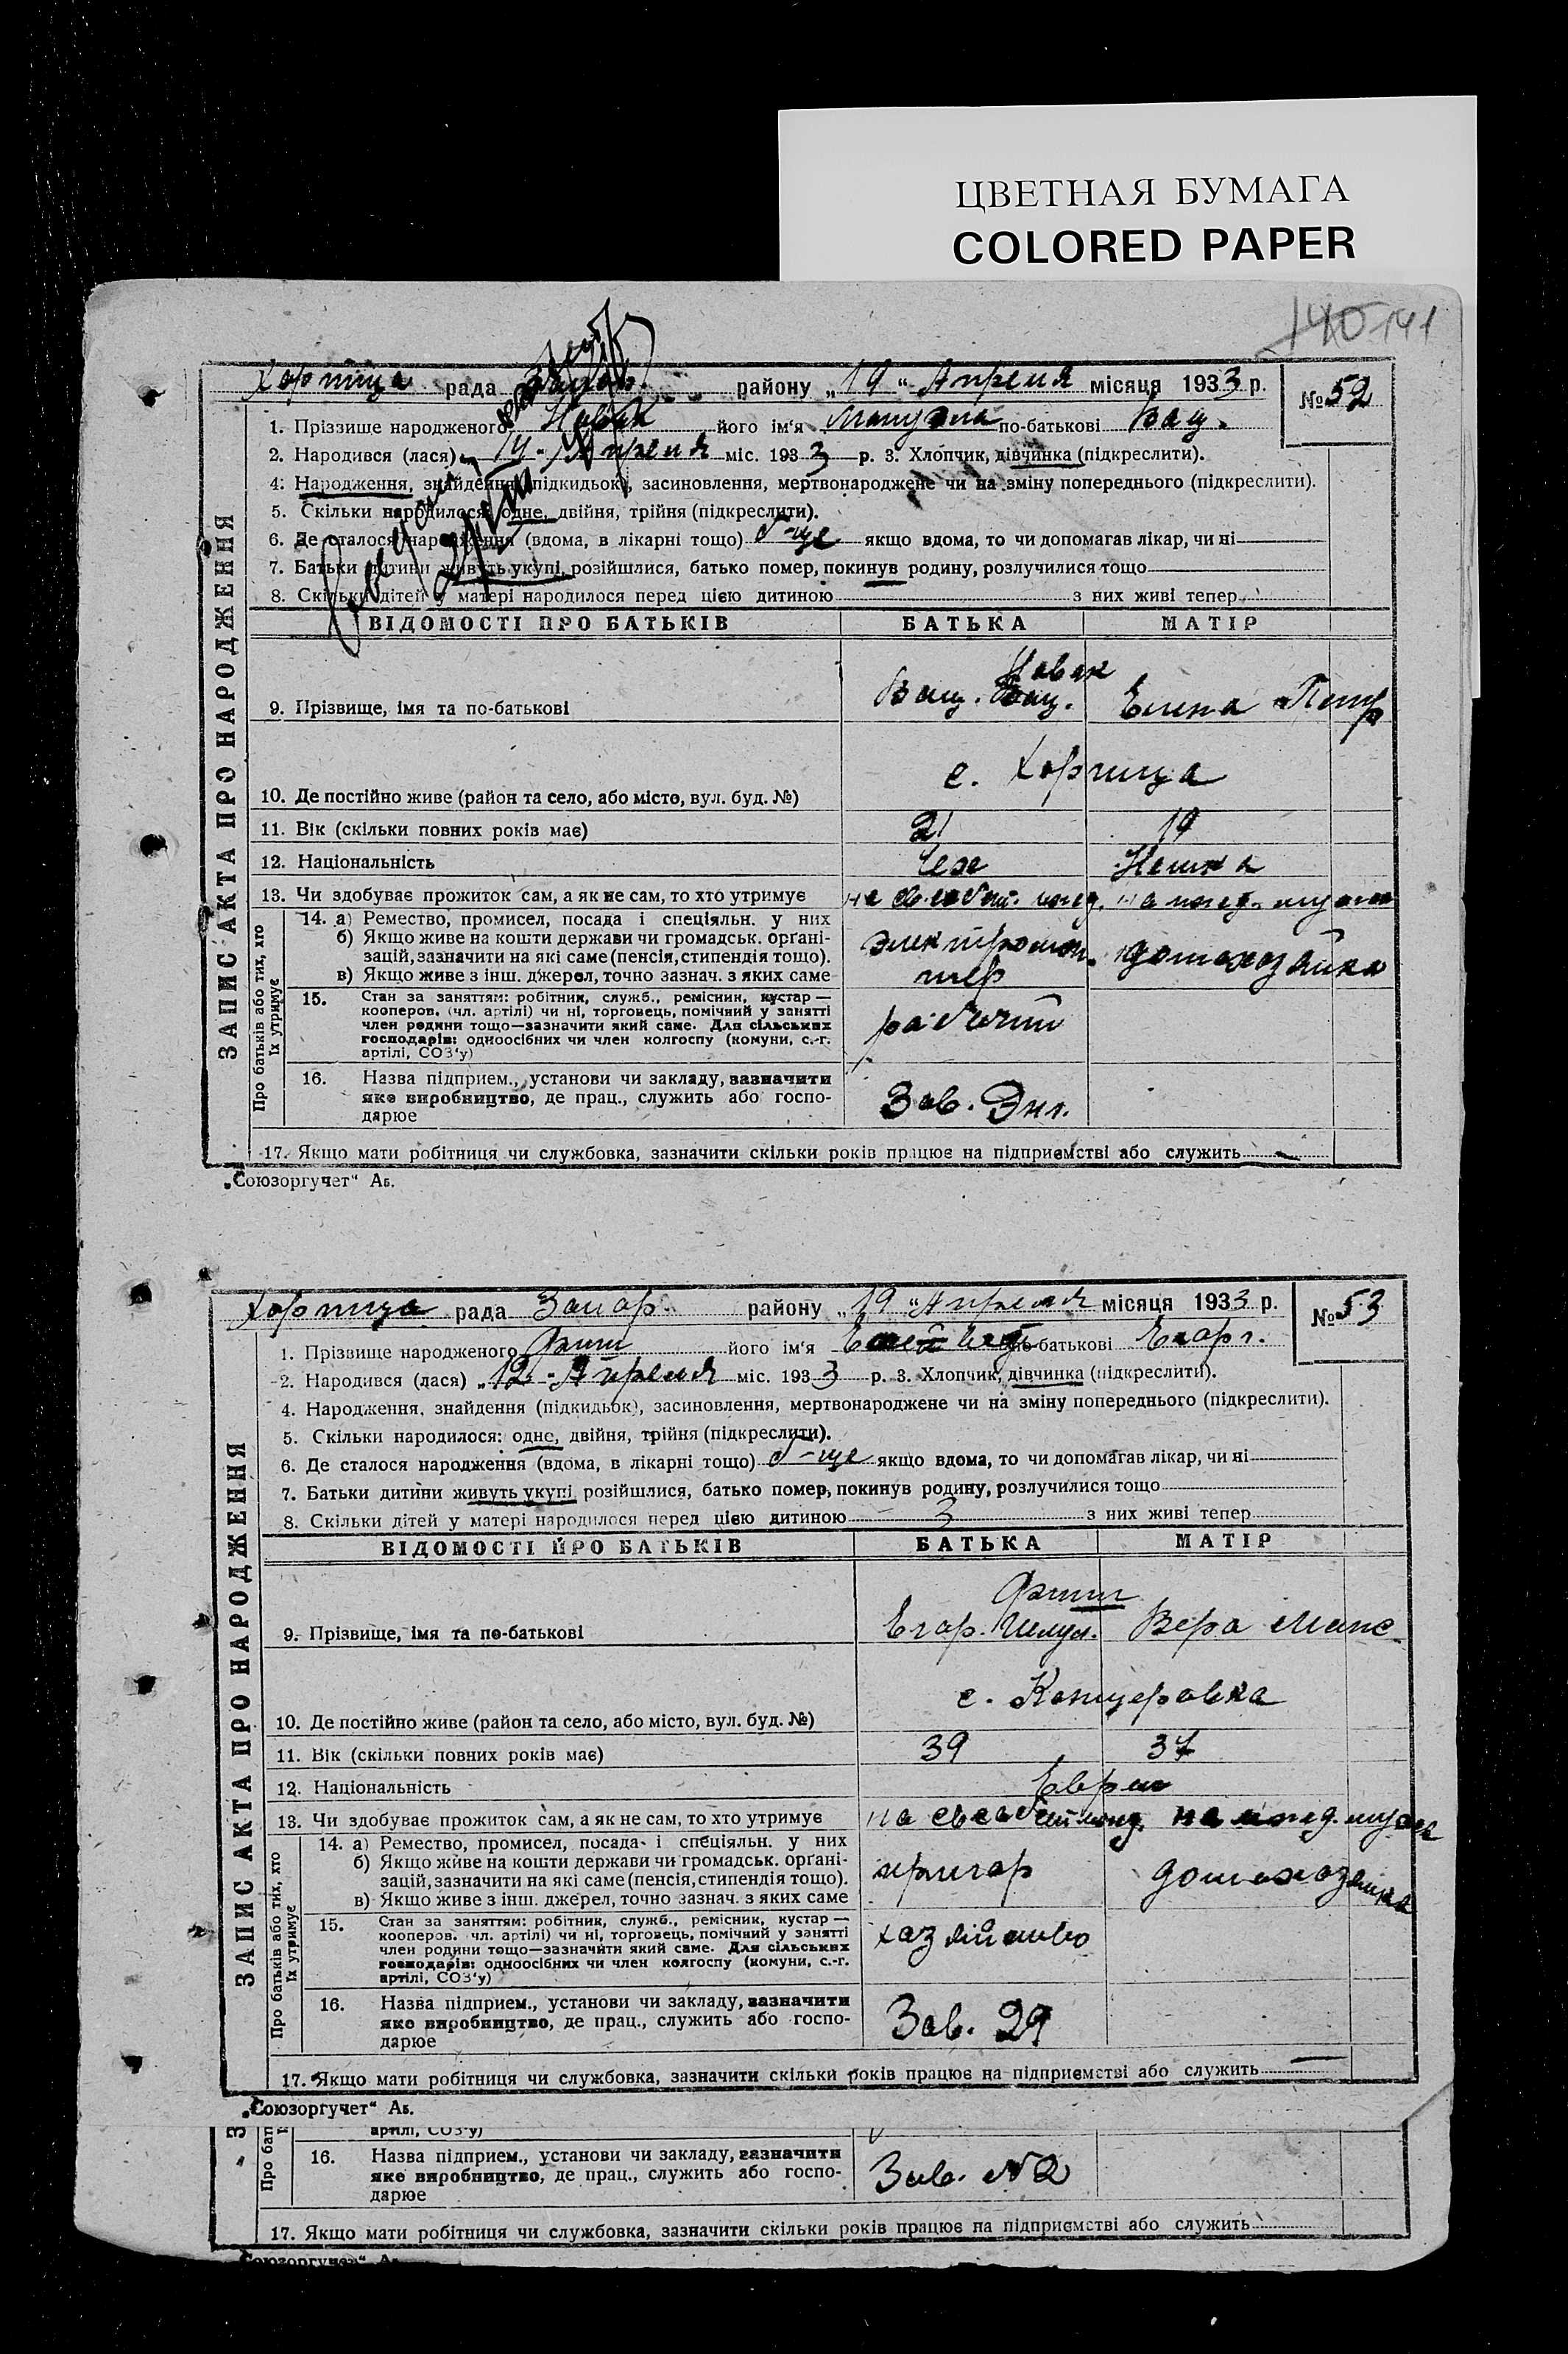 ЦВЕТНАЯ БУМАГА
COLORED PAPER
140 141
Хортица рада Запор. району „19“ Апреля місяця 1933 р. № 52
ЗАПИС АКТА ПРО НАРОДЖЕННЯ
1. Прізвише народженого Новак його ім‘я по-батькові Вац.
2. Народився (лася) Апреля міс. 1933 р. 3. Хлопчик, дівчинка (підкреслити).
4. Народження, знайдення (підкидьок), засиновлення, мертвонароджене чи на зміну попереднього (підкреслити).
5. Скільки народилося: одне, двійня, трійня (підкреслити).
6. Де сталося народження (вдома, в лікарні тощо) б-це якщо вдома, то чи допомагав лікар, чи ні
7. Батьки дитини живуть укупі, розійшлися, батько помер, покинув родину, розлучилися тощо
8. Скільки дітей у матері народилося перед цією дитиною з них живі тепер
ВІДОМОСТІ ПРО БАТЬКІВ БАТЬКА МАТІР
Новак
9. Прізвище, імя та по-батькові Вац. Вац. Елена Петр
10. Де постійно живе (район та село, або місто, вул. буд. №) с. Хортица
11. Вік (скільки повних років має) 21 19
12. Національність Чех Немка
13. Чи здобуває прожиток сам, а як не сам, то хто утримує на ижд. мужа
Про батьків або тих, хто їх утримує
14. а) Ремество, промисел, посада і спеціяльн. у них
б) Якщо живе на кошти держави чи громадськ. орґані-
зацій, зазначити на які саме (пенсія, стипендія тощо).
в) Якщо живе з інш. джерел, точно зазнач. з яких саме
электромон-
тер
домохозяйка
15. Стан за заняттям: робітник, служб., ремісник, кустар —
кооперов. (чл. артілі) чи ні, торговець, помічний у занятті
член родини тощо—зазначити який саме. Для сільських
господарів: одноосібних чи член колгоспу (комуни, с.-г.
артілі, СОЗ‘у)
рабочий
16. Назва підприєм., установи чи закладу, зазначити
яке виробництво, де прац., служить або госпо-
дарює
Зав.
17. Якщо мати робітниця чи службовка, зазначити скільки років працює на підприємстві або служить —
„Союзоргучет“ Аб.
Хортица рада Запор. району „19“ Апреля місяця 1933 р. № 53
ЗАПИС АКТА ПРО НАРОДЖЕННЯ
1. Прізвище народженого його ім‘я по-батькові Егор.
2. Народився (лася) „12 - Апреля міс. 1933 р. 3. Хлопчик, дівчинка (підкреслити).
4. Народження, знайдення (підкидьок), засиновлення, мертвонароджене чи на зміну попереднього (підкреслити).
5. Скільки народилося: одне, двійня, трійня (підкреслити).
6. Де сталося народження (вдома, в лікарні тощо) б-це якщо вдома, то чи допомагав лікар, чи ні
7. Батьки дитини живуть укупі розійшлися, батько помер, покинув родину, розлучилися тощо
8. Скільки дітей у матері народилося перед цією дитиною 3 з них живі тепер
ВІДОМОСТІ ПРО БАТЬКІВ БАТЬКА МАТІР
9. Прізвище, імя та по-батькові Егор. Вера
10. Де постійно живе (район та село, або місто, вул. буд. №) с. Канцеровка
11. Вік (скільки повних років має) 39 37
12. Національність Евреи
13. Чи здобуває прожиток сам, а як не сам, то хто утримує на ижд. мужа
Про батьків або тих, хто їх утримує
14. а) Ремество, промисел, посада і спеціяльн. у них
б) Якщо живе на кошти держави чи громадськ. орґані-
зацій, зазначити на які саме (пенсія, стипендія тощо).
в) Якщо живе з інш. джерел, точно зазнач. з яких саме
пригор
домохозяйка
15. Стан за заняттям: робітник, служб., ремісник, кустар —
кооперов. чл. артілі) чи ні, торговець, помічний у занятті
член родини тощо—зазначити який саме. Для сільських
господарів: одноосібних чи член колгоспу (комуни, с.-г.
артілі, СОЗ‘у)
хазяйство
16. Назва підприєм., установи чи закладу, зазначити
яке виробництво, де прац., служить або госпо-
дарює
Зав. 29
17. Якщо мати робітниця чи службовка, зазначити скільки років працює на підприємстві або служить —
„Союзоргучет“ Аб.
артілі, СОЗ‘у)
16. Назва підприєм., установи чи закладу, зазначити
яке виробництво, де прац., служить або госпо-
дарюе
Зав. №2
17. Якщо мати робітниця чи службовка, зазначити скільки років працює на підприємстві або служить
„Союзоргучет“ Аб.